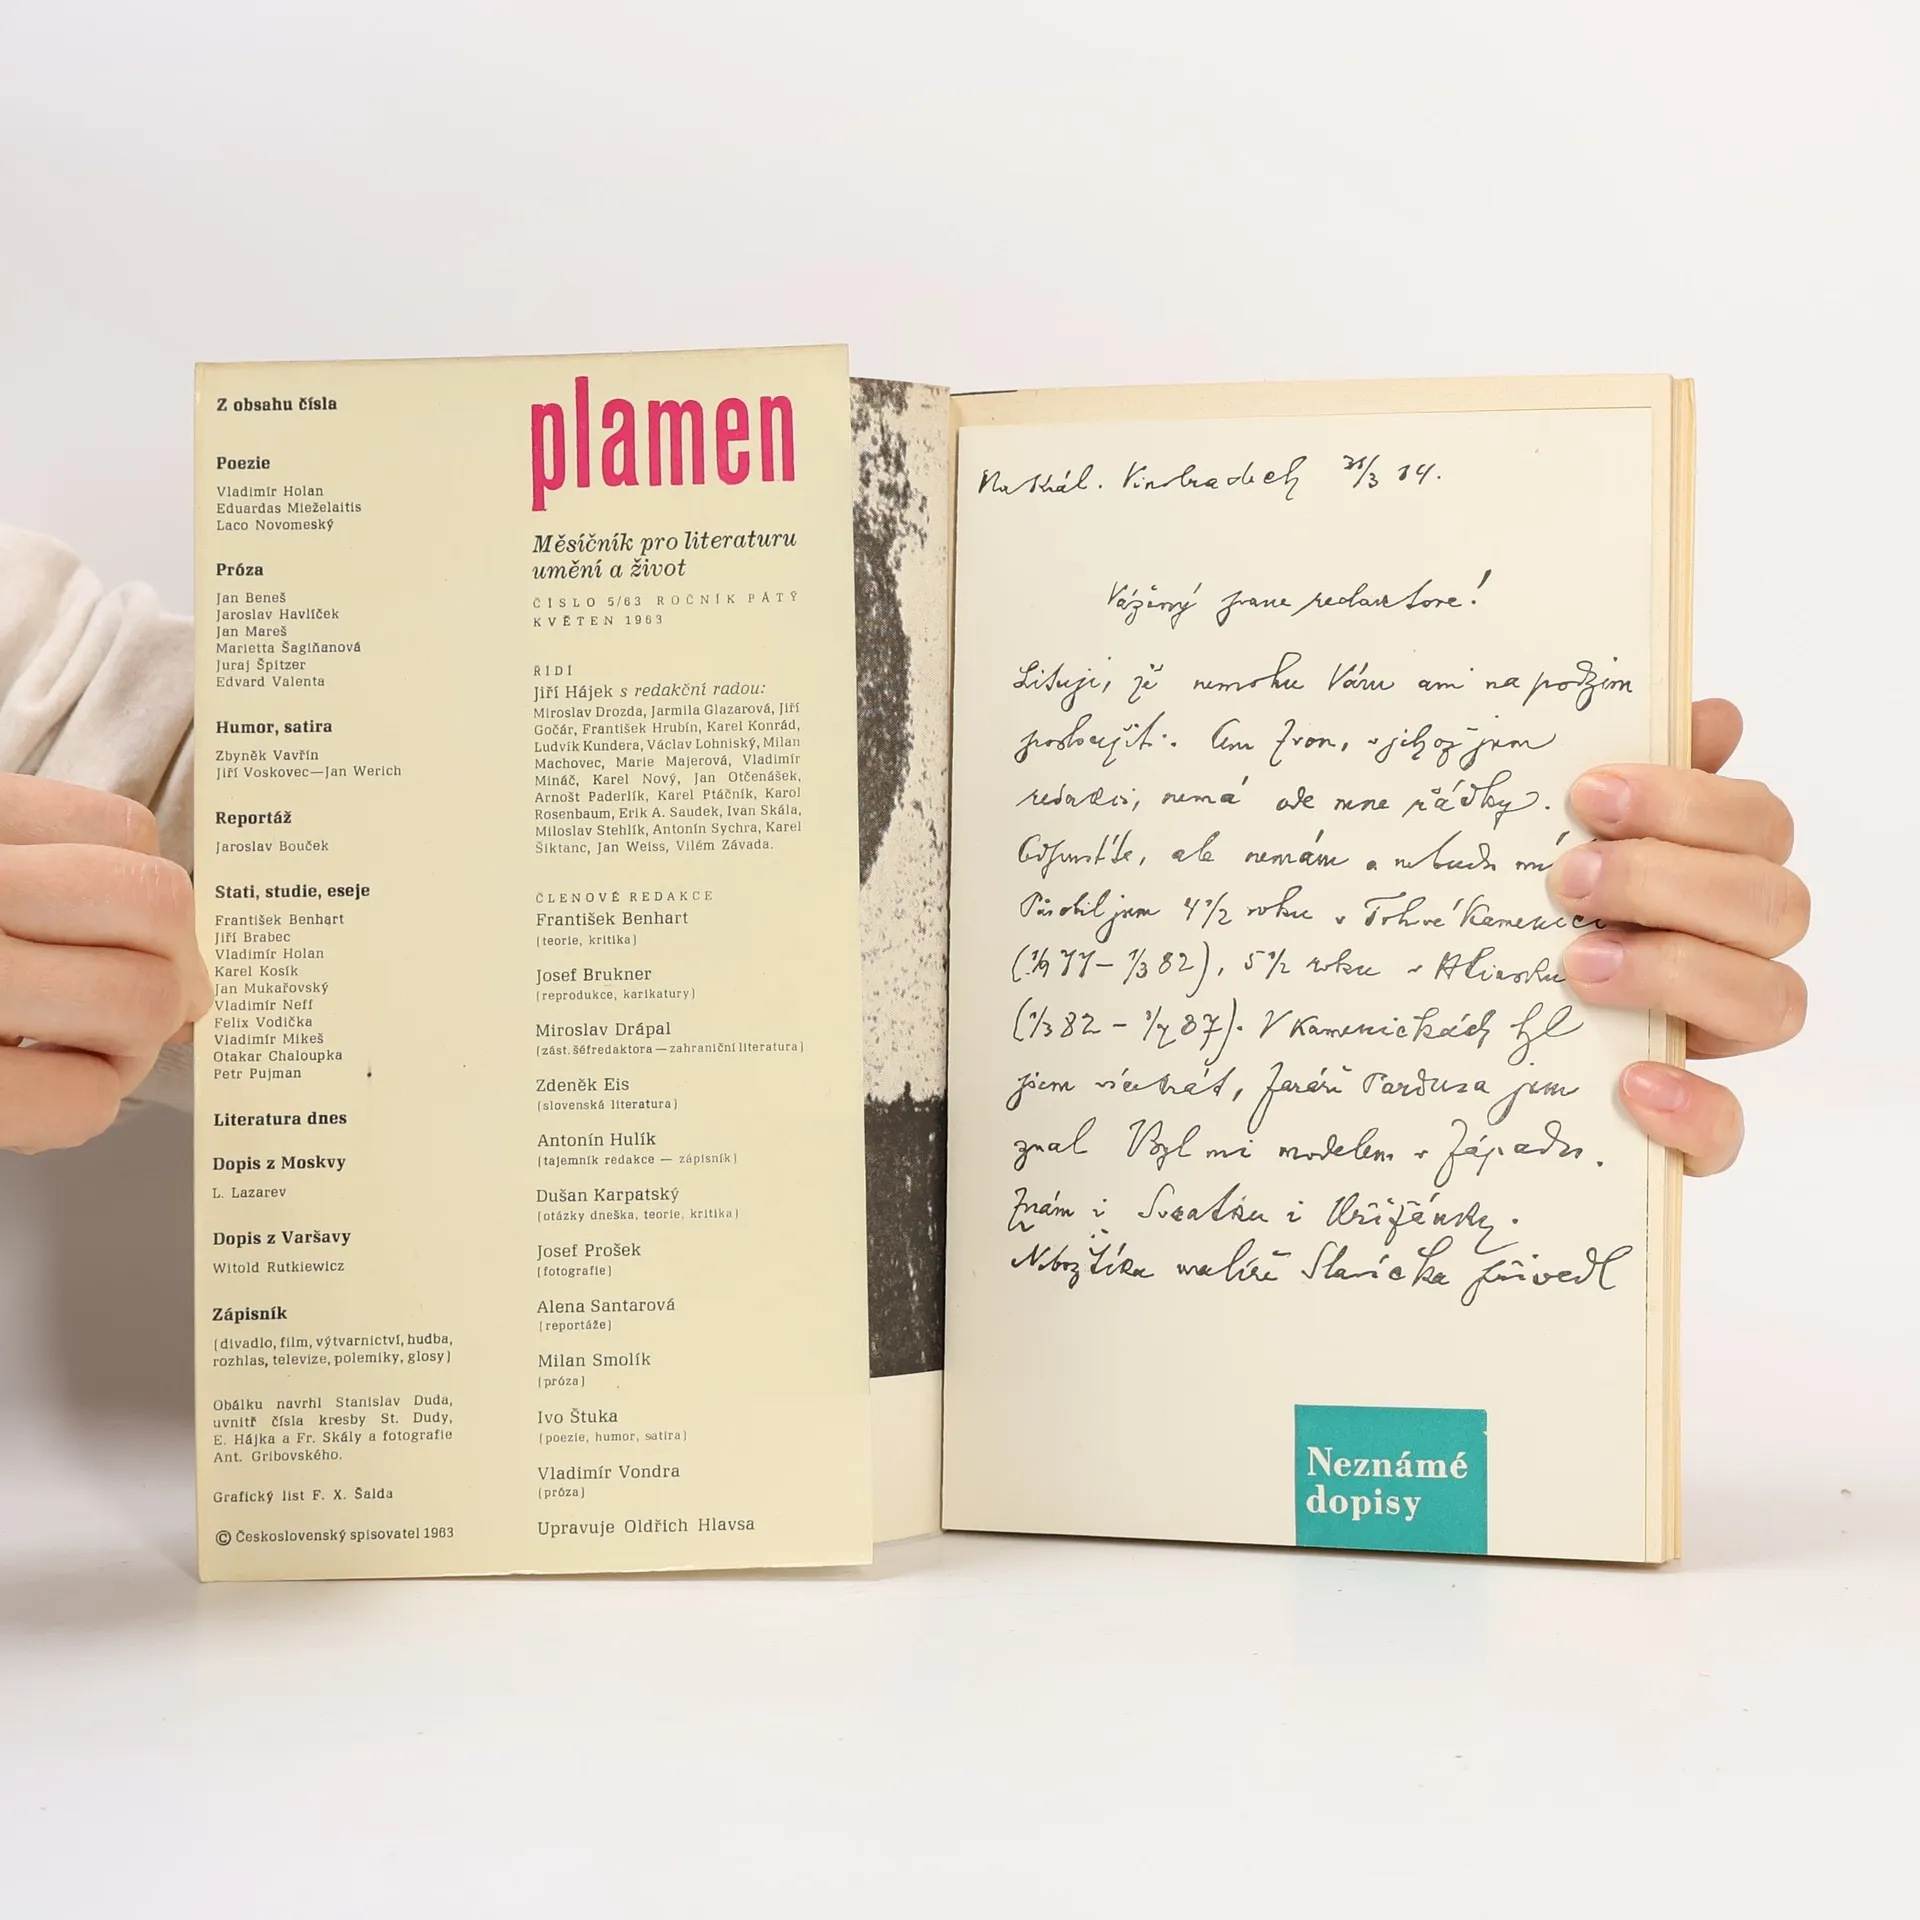 Z obsahu čísla
Poezie
Vladimír Holan
Eduardas Mieželaitis
Laco Novomeský
Próza
Jan Beneš
Jaroslav Havlíček
Jan Mareš
Marietta Šagiňanová
Juraj Špitzer
Edvard Valenta
Humor, satira
Zbyněk Vavřín
Jiří Voskovec—Jan Werich
Reportáž
Jaroslav Bouček
Stati, studie, eseje
František Benhart
Jiří Brabec
Vladimír Holan
Karel Kosík
Jan Mukařovský
Vladimír Neff
Felix Vodička
Vladimír Mikeš
Otakar Chaloupka
Petr Pujman
Literatura dnes
Dopis z Moskvy
L. Lazarev
Dopis z Varšavy
Witold Rutkiewicz
Zápisník
(divadlo, film, výtvarnictví, hudba,
rozhlas, televize, polemiky, glosy)
Obálku navrhl Stanislav Duda,
uvnitř čísla kresby St. Dudy,
E. Hájka a Fr. Skály a fotografie
Ant. Gribovského.
Grafický list F. X. Šalda
© Československý spisovatel 1963
plamen
Měsíčník pro literaturu
umění a život
ČÍSLO 5/63 ROČNÍK PÁTÝ
KVĚTEN 1963
ŘÍDÍ
Jiří Hájek s redakční radou:
Miroslav Drozda, Jarmila Glazarová, Jiří
Gočár, František Hrubín, Karel Konrád,
Ludvík Kundera, Václav Lohniský, Milan
Machovec, Marie Majerová, Vladimír
Mináč, Karel Nový, Jan Otčenášek,
Arnošt Paderlík, Karel Ptáčník, Karol
Rosenbaum, Erik A. Saudek, Ivan Skála,
Miloslav Stehlík, Antonín Sychra, Karel
Šiktanc, Jan Weiss, Vilém Závada.
ČLENOVÉ REDAKCE
František Benhart
(teorie, kritika)
Josef Brukner
(reprodukce, karikatury)
Miroslav Drápal
(zást. šéfredaktora — zahraniční literatura)
Zdeněk Eis
(slovenská literatura)
Antonín Hulík
(tajemník redakce — zápisník)
Dušan Karpatský
(otázky dneška, teorie, kritika)
Josef Prošek
(fotografie)
Alena Santarová
(reportáže)
Milan Smolík
(próza)
Ivo Štuka
(poezie, humor, satira)
Vladimír Vondra
(próza)
Upravuje Oldřich Hlavsa
Na Král. Vinohradech
Vážený pane redaktore!
Lituji, že nemohu Vám ani na podzim
posloužit. Ani Zvon, v jehož jsem
redakci, nemá ode mne řádky.
Odpusťte, ale nemám a nebudu mí
Působil jsem 4 1/2 roku v Trhové Kamenici
(1/9 77 – 1/3 82), 5 1/2 roku v Hlinsku
(1/3 82 – 87). V Kameničkách byl
jsem vícekrát, faráře Pardusa jsem
znal Byl mi modelem v Západu.
Znám i Svratku i Křižánky.
Nebožtíka malíře Slavíčka přivedl
Neznámé
dopisy